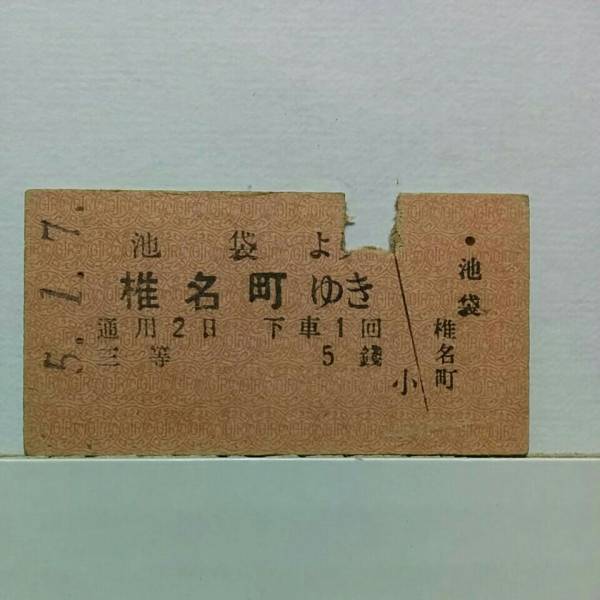 5.1.7.
池袋よ
椎名町ゆき
通用2日 下車1回
三等 5錢
小
・池袋
椎名町